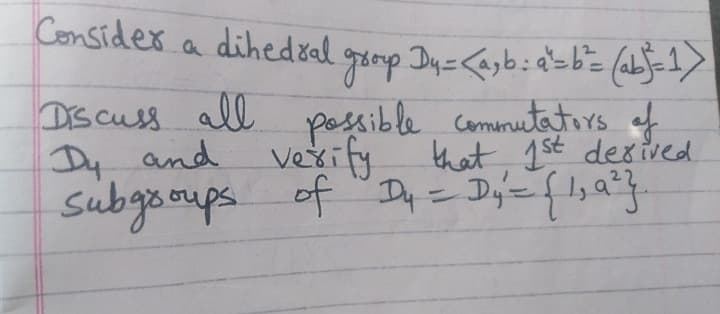 Consider a dihedral group D₄=<a,b: a⁴=b²=(ab)²=1>
Discuss all possible commutators of
D₄ and verify that 1st derived
subgroups of D₄ = D₄'= {1, a²}.